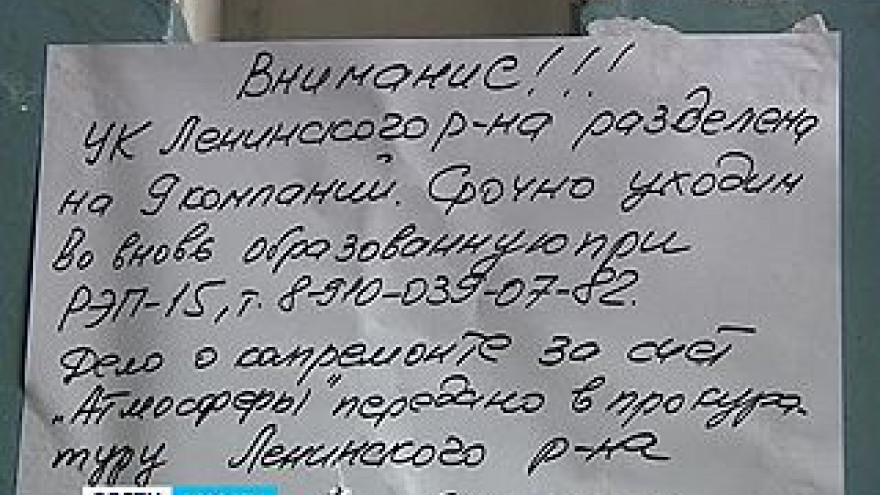 Внимание!!!
УК Ленинского р-на разделена
на 9 компаний. Срочно уходим
во вновь образованную при
РЭП-15, т. 8-910-039-07-82.
Дело о капремонте за счёт
"Атмосферы" передано в прокура-
туру Ленинского р-на
ВЕСТИ